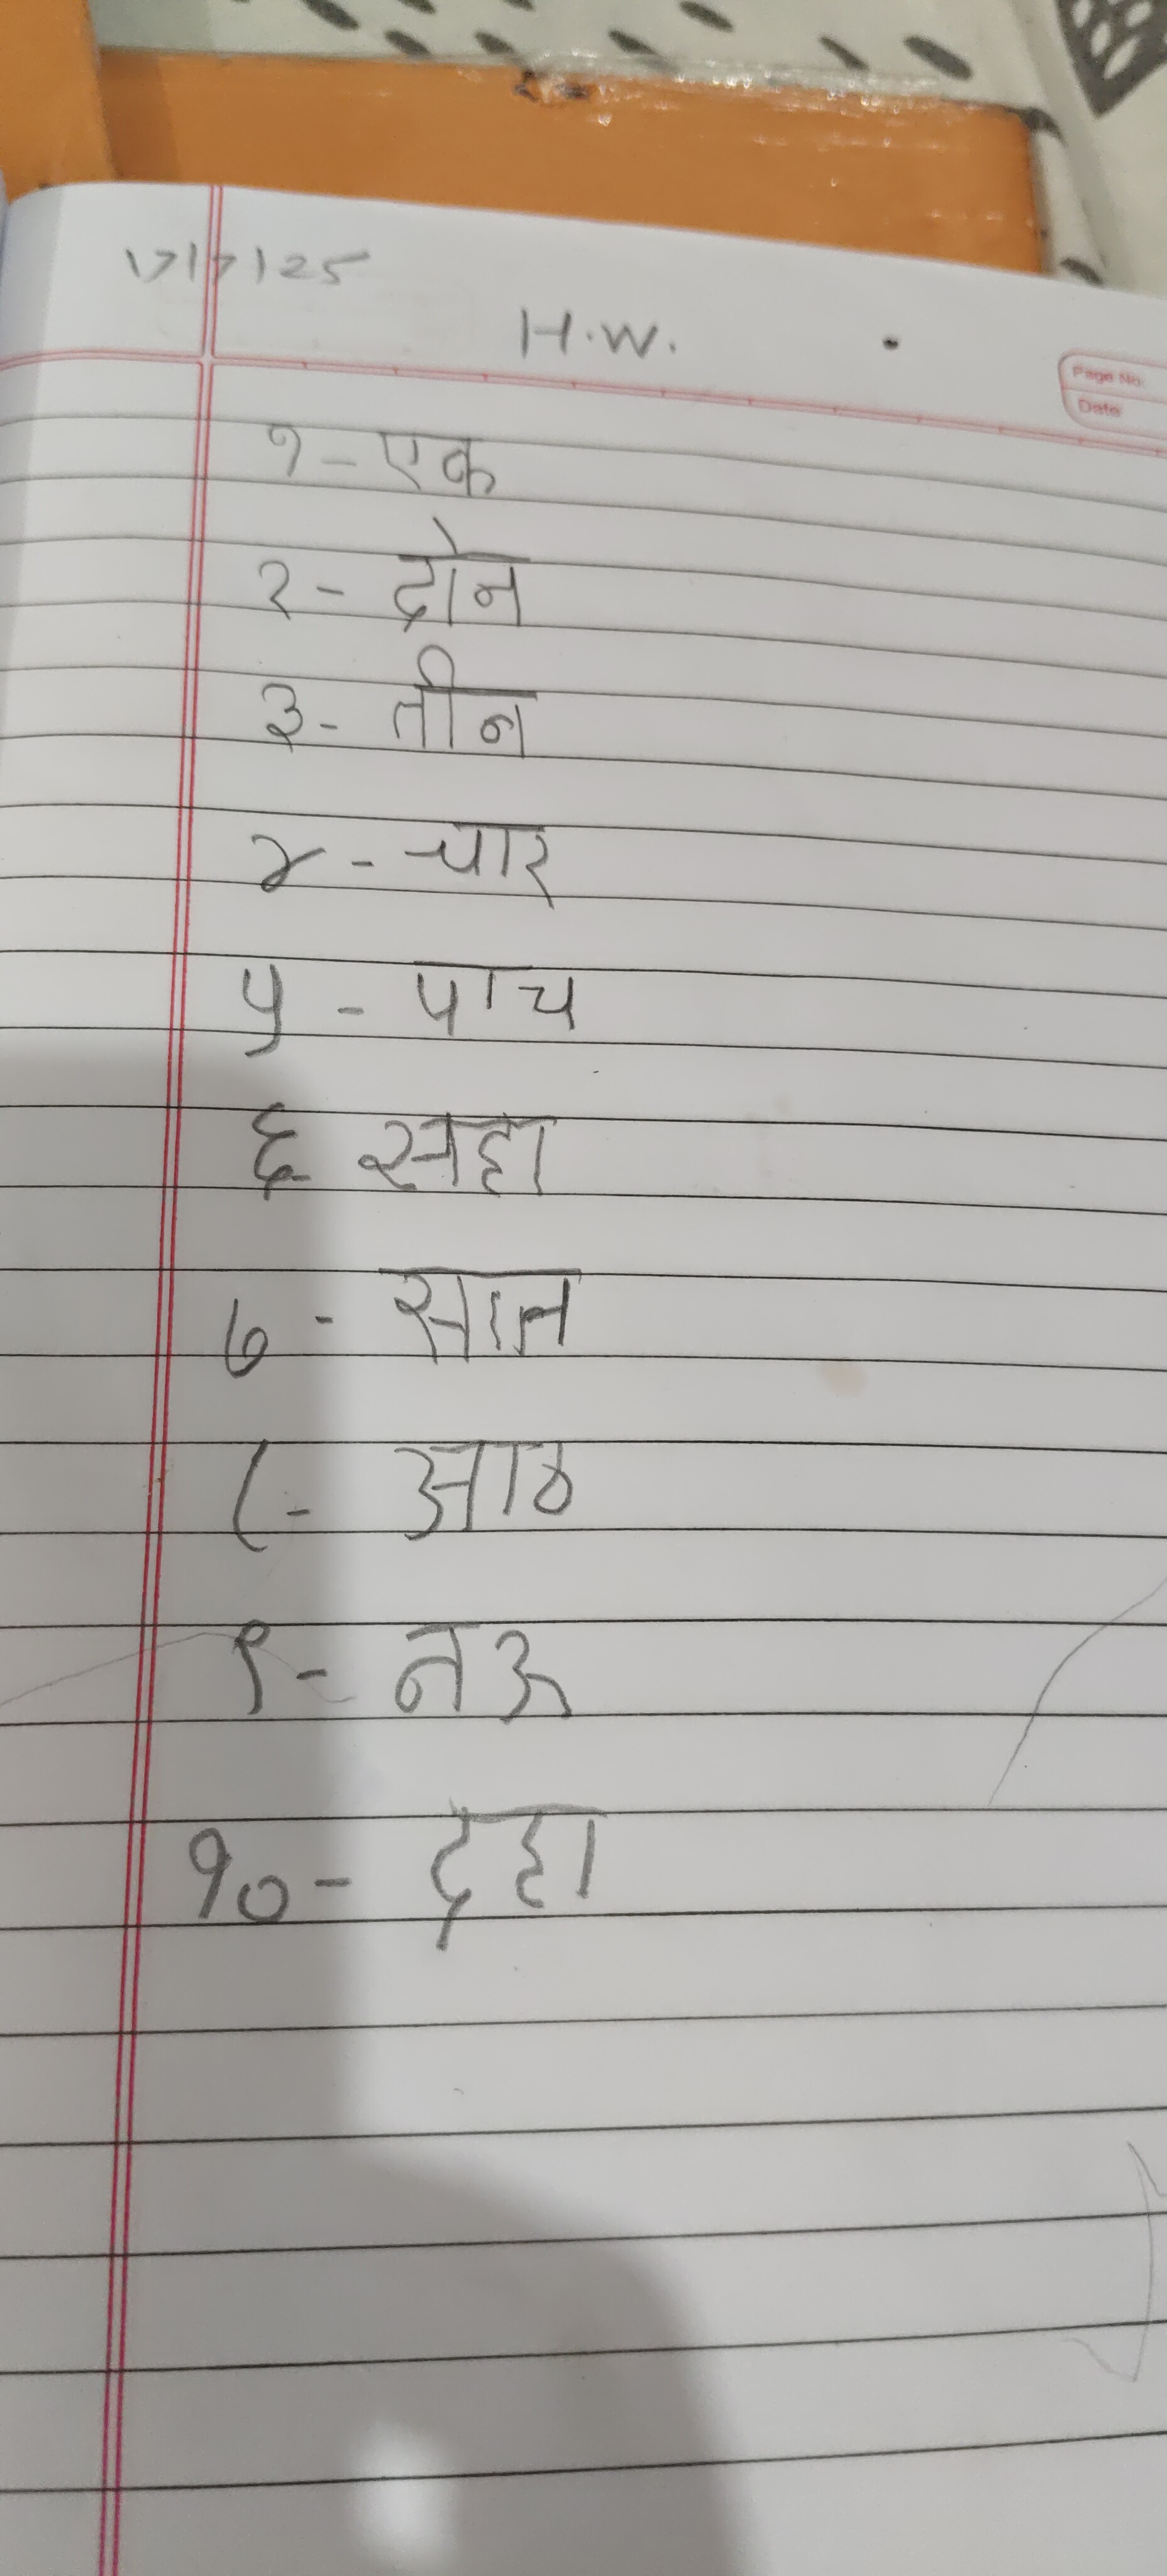 17/7/25
H.W.
Page No.
Date
१ - एक
२ - दोन
३ - तीन
४ - चार
५ - पाच
६ - सहा
७ - सात
८ - आठ
९ - नऊ
१० - दहा